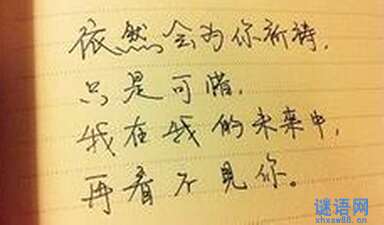 依然会为你祈祷,
只是可惜,
我在我的未来中,
再看不見你。
谜语网
xhxsw88.cn